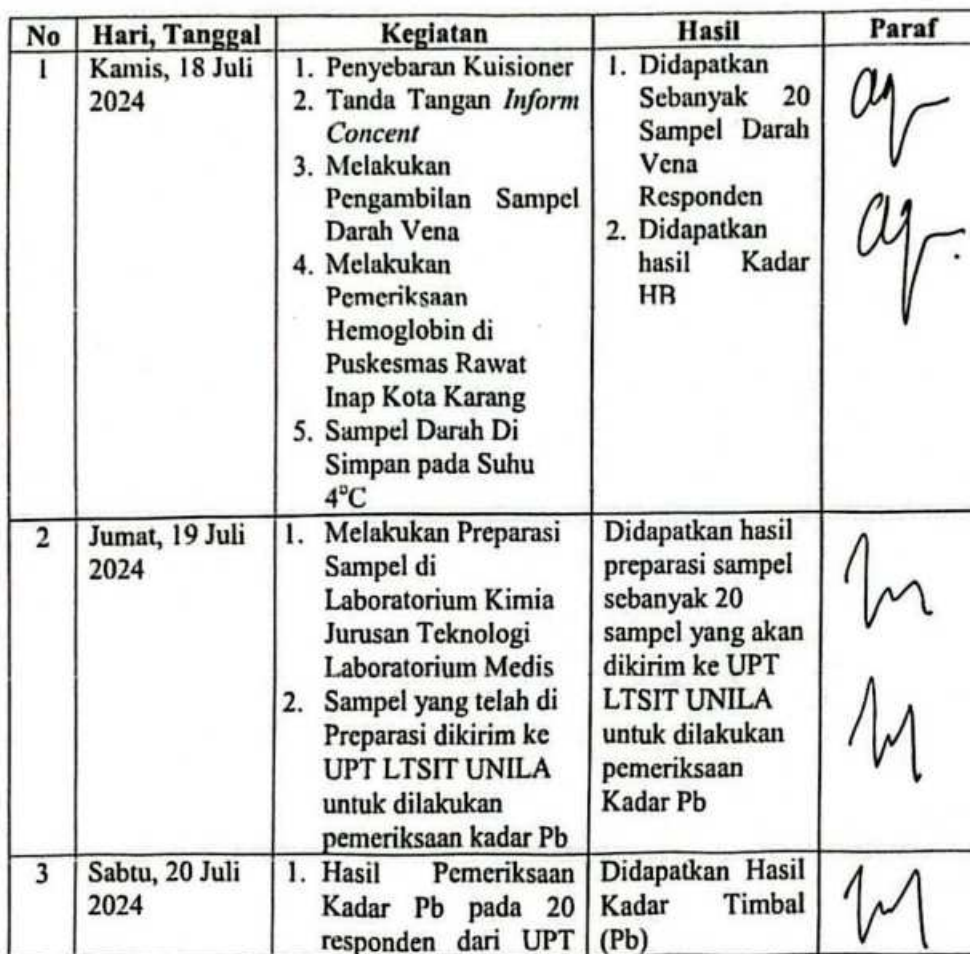 No Hari, Tanggal Kegiatan Hasil Paraf
1
Kamis, 18 Juli
2024
1. Penyebaran Kuisioner
2. Tanda Tangan Inform
Concent
3. Melakukan
Pengambilan Sampel
Darah Vena
4. Melakukan
Pemeriksaan
Hemoglobin di
Puskesmas Rawat
Inap Kota Karang
5. Sampel Darah Di
Simpan pada Suhu
4°C
1. Didapatkan
Sebanyak 20
Sampel Darah
Vena
Responden
2. Didapatkan
hasil Kadar
HB
2
Jumat, 19 Juli
2024
1. Melakukan Preparasi
Sampel di
Laboratorium Kimia
Jurusan Teknologi
Laboratorium Medis
2. Sampel yang telah di
Preparasi dikirim ke
UPT LTSIT UNILA
untuk dilakukan
pemeriksaan kadar Pb
Didapatkan hasil
preparasi sampel
sebanyak 20
sampel yang akan
dikirim ke UPT
LTSIT UNILA
untuk dilakukan
pemeriksaan
Kadar Pb
3
Sabtu, 20 Juli
2024
1. Hasil Pemeriksaan
Kadar Pb pada 20
responden dari UPT
Didapatkan Hasil
Kadar Timbal
(Pb)